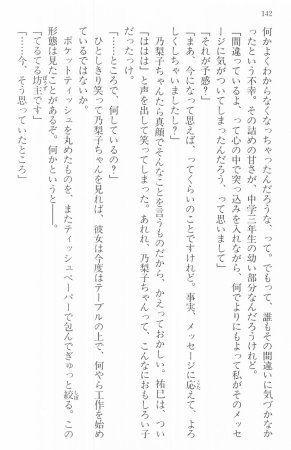 142
何かよくわからなくなっちゃったんだろうな、って。でもって、誰もその間違いに気づかなか
ったという不幸。その詰めの甘さが、中学三年生の幼い部分なんだろうけれど。
「間違っているよ、って心の中で突っ込みを入れながら、何でよりにもよって私がそのメッセ
ージに気がついてしまったんだろう、って思いまして」
「それが予感?」
「まあ、今になって思えば、ってくらいのことですけれど。事実、メッセージに応えて、よろ
しくしちゃいましたし?」
乃梨子ちゃんたら真顔でそんなことを言うものだから、かえっておかしい。祐巳は、つい
「ははは」と声を出して笑ってしまった。あれれ、乃梨子ちゃんって、こんなにおもしろい子
だったっけ。
「……ところで、何しているの?」
ひとしきり笑って乃梨子ちゃんを見れば、彼女は今度はテーブルの上で、何やら工作を始め
ているではないか。
ポケットティッシュを丸めたものを、またティッシュペーパーで包んでぎゅっと絞る。この
形態は見たことがあるぞ。何かというと――。
「てるてる坊主です」
「……今、そう思っていたところ」